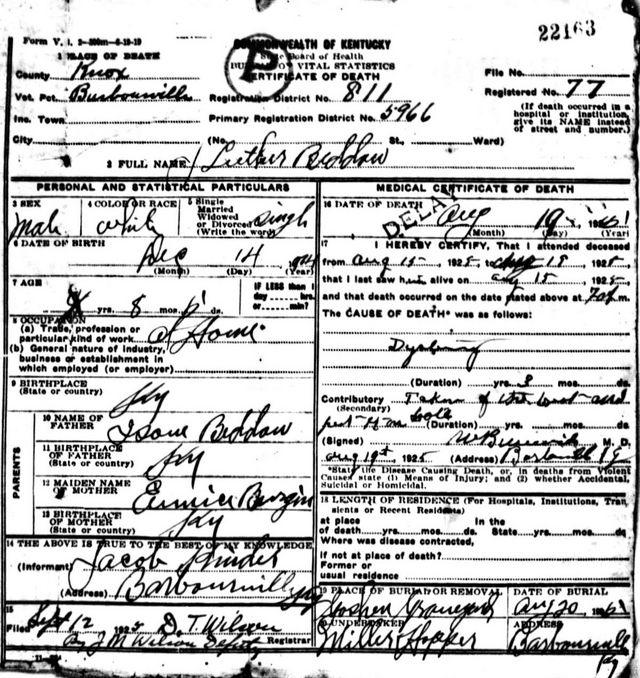 22163
Form V. S.
COMMONWEALTH OF KENTUCKY
State Board of Health
BUREAU OF VITAL STATISTICS
CERTIFICATE OF DEATH
1 PLACE OF DEATH
County Knox
Vot. Pct. Barbourville
Inc. Town
City
P
Registration District No. 811
Primary Registration District No. 5966
(No. St., Ward)
File No.
Registered No. 77
(If death occurred in a
hospital or institution,
give its NAME instead
of street and number.)
2 FULL NAME Luther Beddow
PERSONAL AND STATISTICAL PARTICULARS
3 SEX
Male
4 COLOR OR RACE
White
5 Single
Married
Widowed
or Divorced
(Write the word)
Single
6 DATE OF BIRTH
Dec 14
(Month) (Day) (Year)
7 AGE
yrs. 8 mos. 5 ds.
IF LESS than 1
day hrs.
or min.?
8 OCCUPATION
(a) Trade, profession or
particular kind of work At Home
(b) General nature of industry,
business or establishment in
which employed (or employer)
9 BIRTHPLACE
(State or country)
Ky
PARENTS
10 NAME OF
FATHER
Beddow
11 BIRTHPLACE
OF FATHER
(State or country)
Ky
12 MAIDEN NAME
OF MOTHER
13 BIRTHPLACE
OF MOTHER
(State or country)
Ky
14 THE ABOVE IS TRUE TO THE BEST OF MY KNOWLEDGE
(Informant) Jacob
(Address) Barbourville Ky
15
Filed Sept 12 1925 D. T. Wilson
By J M Wilson Deputy Registrar
MEDICAL CERTIFICATE OF DEATH
16 DATE OF DEATH
DELAY
Aug 19
(Month) (Day) (Year)
17
I HEREBY CERTIFY, That I attended deceased
from Aug 15 1925 to Aug 18 1925,
that I last saw him alive on Aug 15 1925
and that death occurred on the date stated above at m.
The CAUSE OF DEATH* was as follows:
(Duration) yrs. mos. ds.
Contributory
(Secondary)
(Duration) yrs. mos. ds.
(Signed) M. D.
Aug 19th, 1925 (Address) Barbourville Ky
*State the Disease Causing Death, or, in deaths from Violent
Causes state (1) Means of Injury; and (2) whether Accidental,
Suicidal or Homicidal.
18 LENGTH OF RESIDENCE (For Hospitals, Institutions, Tran-
sients or Recent Residents)
at place In the
of death yrs. mos. ds. State yrs. mos. ds.
Where was disease contracted,
if not at place of death?
Former or
usual residence
19 PLACE OF BURIAL OR REMOVAL
Graveyard
DATE OF BURIAL
Aug 20
20 UNDERTAKER
Miller Hopper
ADDRESS
Barbourville
Ky